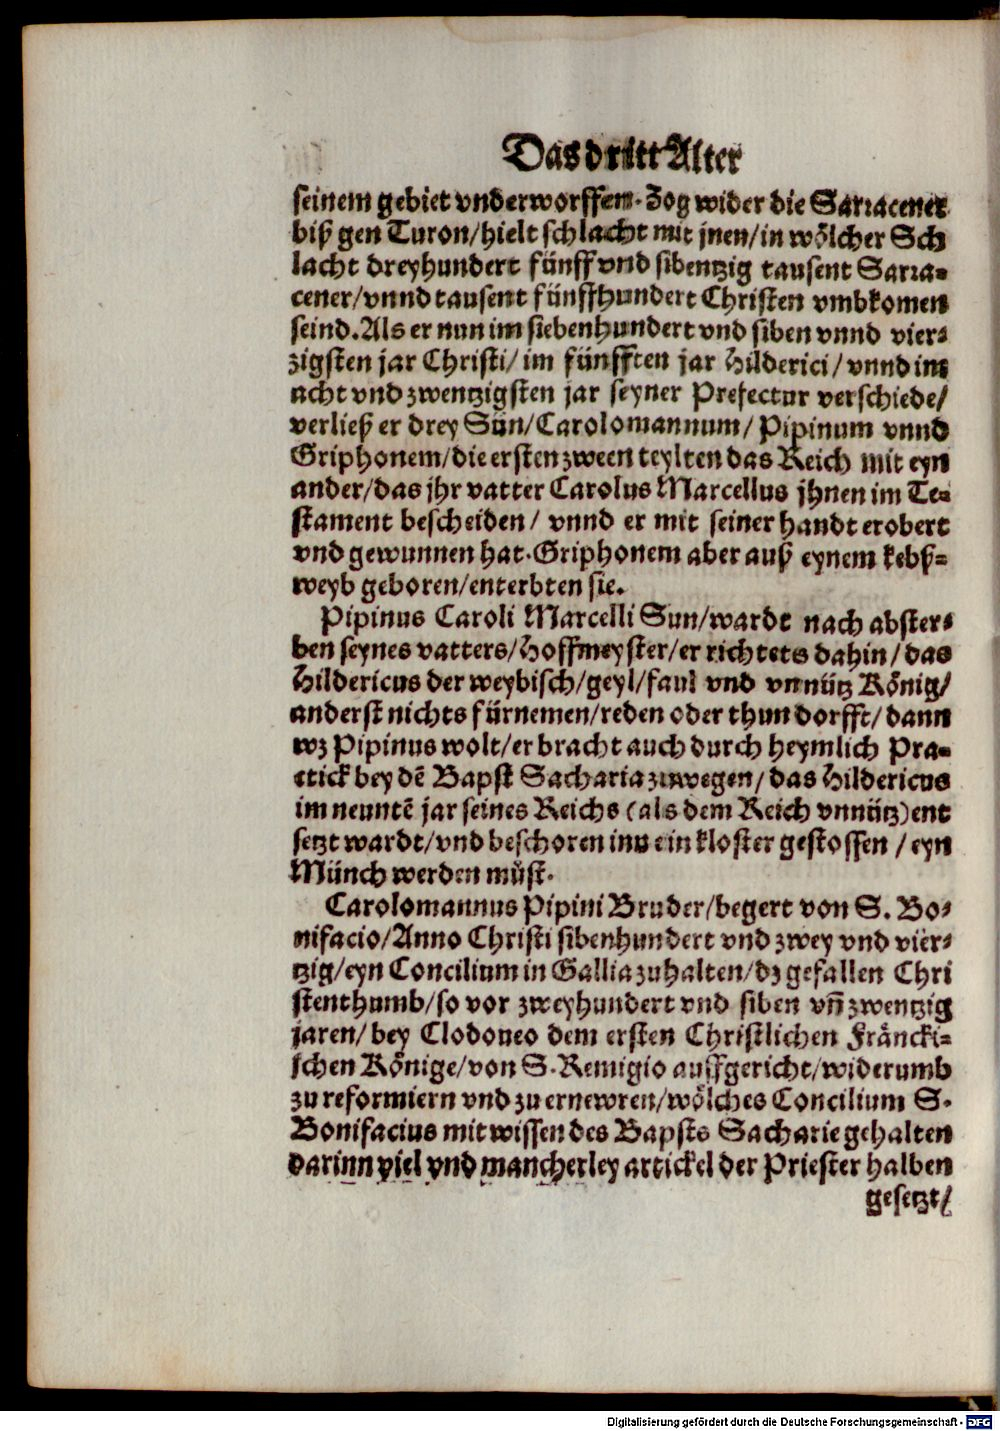 Das dritt Alter
seinem gebiet vnderworffen. Zog wider die Sarracener
biß gen Turon/hielt schlacht mit jnen/in wölcher Sch
lacht dreyhundert fünff vnd sibentzig tausent Sarra-
cener/vnnd tausent fünffhundert Christen vmbkomen
seind. Als er nun im siebenhundert vnd siben vnnd vier-
zigsten jar Christi/ im fünfften jar Hilderici/ vnnd im
acht vnd zwentzigsten jar seyner Prefectur verschiede/
verließ er drey Sün/Carolomannum/ Pipinum vnnd
Griphonem/die ersten zween teylten das Reich mit eyn
ander/das jhr vatter Carolus Marcellus jhnen im Te-
stament bescheiden/ vnnd er mit seiner handt erobert
vnd gewunnen hat. Griphonem aber auß eynem kebß-
weyb geboren/enterbten sie.
Pipinus Caroli Marcelli Sun/wardt nach abster-
ben seynes vatters/Hoffmeyster/er richtets dahin/das
Hildericus der weybisch/geyl/faul vnd vnnütz König/
anderst nichts fürnemen/reden oder thun dorfft/dann
wz Pipinus wolt/er bracht auch durch heymlich Pra-
ctick bey dē Bapst Sacharia zuwegen/das Hildericus
im neuntē jar seines Reichs (als dem Reich vnnütz) ent
setzt wardt/vnd beschoren inn ein kloster gestossen/eyn
Münch werden můst.
Carolomannus Pipini Bruder/begert von S. Bo-
nifacio/Anno Christi sibenhundert vnd zwey vnd vier-
tzig/eyn Concilium in Gallia zuhalten/dz gefallen Chri
stenthumb/so vor zweyhundert vnd siben vñ zwentzig
jaren/ bey Clodoueo dem ersten Christlichen Fräncki-
schen Könige/von S. Remigio auffgericht/widerumb
zu reformiern vnd zu ernewren/wölches Concilium S.
Bonifacius mit wissen des Bapsts Sacharie gehalten
darinn viel vnd mancherley artickel der Priester halben
gesetzt/
Digitalisierung gefördert durch die Deutsche Forschungsgemeinschaft - DFG